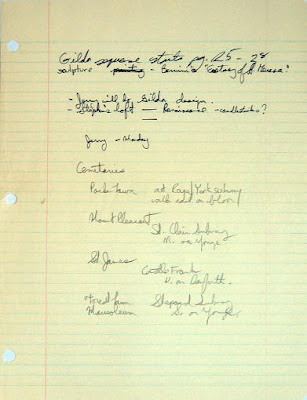 Gilda square starts pg. 25 - 28
sculpture - Bernini's "Ecstasy of St Theresa"
- Jerry will do Gilda design.
- Stephis loft - Renaissance - candlesticks?
Jerry - Monday
Cemetaries
Park lawn at Royal York subway
walk east on bloor
Mount Pleasant
St. Clair Subway
N. on Yonge
St. James
Castle Frank
on Danforth.
Forest lawn Sheppard Subway
Mausoleum on Yonge